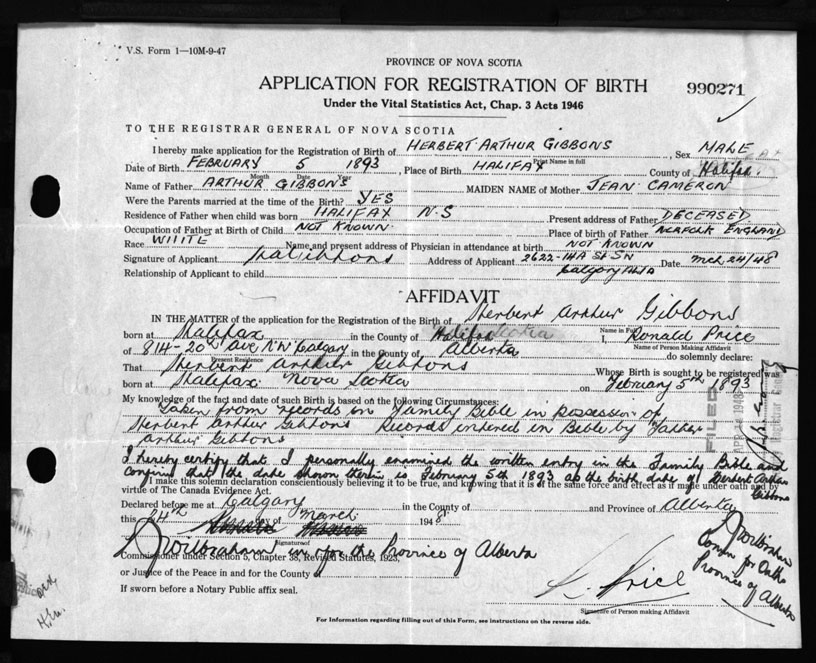 V.S. Form 1—10M-9-47
PROVINCE OF NOVA SCOTIA
APPLICATION FOR REGISTRATION OF BIRTH
990271
Under the Vital Statistics Act, Chap. 3 Acts 1946
TO THE REGISTRAR GENERAL OF NOVA SCOTIA
I hereby make application for the Registration of Birth of HERBERT ARTHUR GIBBONS, Sex MALE
Print Name in full
Date of Birth FEBRUARY 5 1893, Place of Birth HALIFAX County of Halifax.
Month Date Year
Name of Father ARTHUR GIBBONS MAIDEN NAME of Mother JEAN CAMERON
Were the Parents married at the time of the Birth? YES
Residence of Father when child was born HALIFAX N.S Present address of Father DECEASED
Occupation of Father at Birth of Child NOT KNOWN. Place of birth of Father NORFOLK ENGLAND
Race WHITE Name and present address of Physician in attendance at birth NOT KNOWN
Signature of Applicant Gibbons Address of Applicant 2622-14A St SW Date Mch 24/48
Calgary Alta
Relationship of Applicant to child
AFFIDAVIT
IN THE MATTER of the application for the Registration of Birth of Herbert Arthur Gibbons
born at Halifax in the County of Halifax I, Ronald Price
Name in Full
Name of Person Making Affidavit
of 814-20th Ave, N.W Calgary in the County of Alberta do solemnly declare:
Present Residence
That Herbert Arthur Gibbons Whose Birth is sought to be registered was
born at Halifax Nova Scotia on February 5th 1893
My knowledge of the fact and date of such Birth is based on the following Circumstances:
Taken from records in Family Bible in possession of
Herbert Arthur Gibbons Records entered in Bible by Father
Arthur Gibbons
FILED
1948
I hereby certify that I personally examined the written entry in the Family Bible and
confirm that the date shown therein is February 5th 1893 as the birth date of Herbert Arthur
Gibbons
I make this solemn declaration conscientiously believing it to be true, and knowing that it is of the same force and effect as if made under oath and by
virtue of The Canada Evidence Act.
Declared before me at Calgary in the County of and Province of Alberta
this 24th day of March 1948
Signature of
J Wilbraham in & for the Province of Alberta
Commissioner under Section 5, Chapter 38, Revised Statutes, 1923,
or Justice of the Peace in and for the County of
If sworn before a Notary Public affix seal.
J Wilbraham
Comm for Oaths
Province of Alberta
R. Price
Signature of Person making Affidavit
For Information regarding filling out of this Form, see instructions on the reverse side.